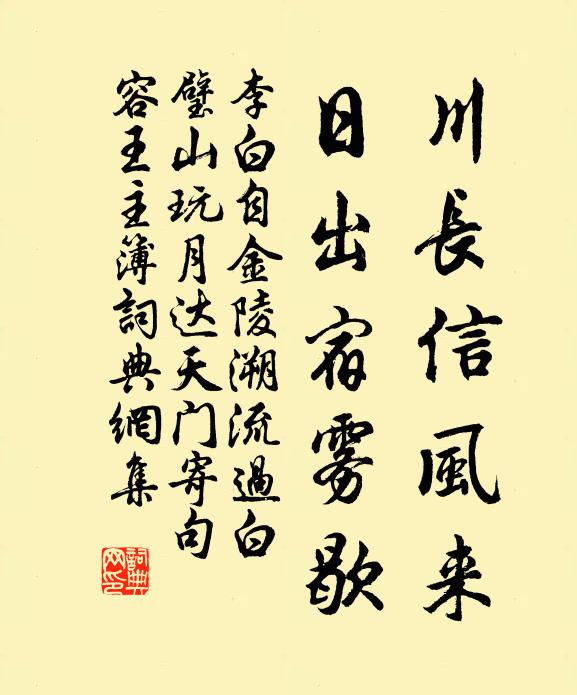 川長信風来
日出宿雾歇
李白自金陵溯流過白
璧山玩月达天门寄句
容王主簿詞典網集
詞典
网印